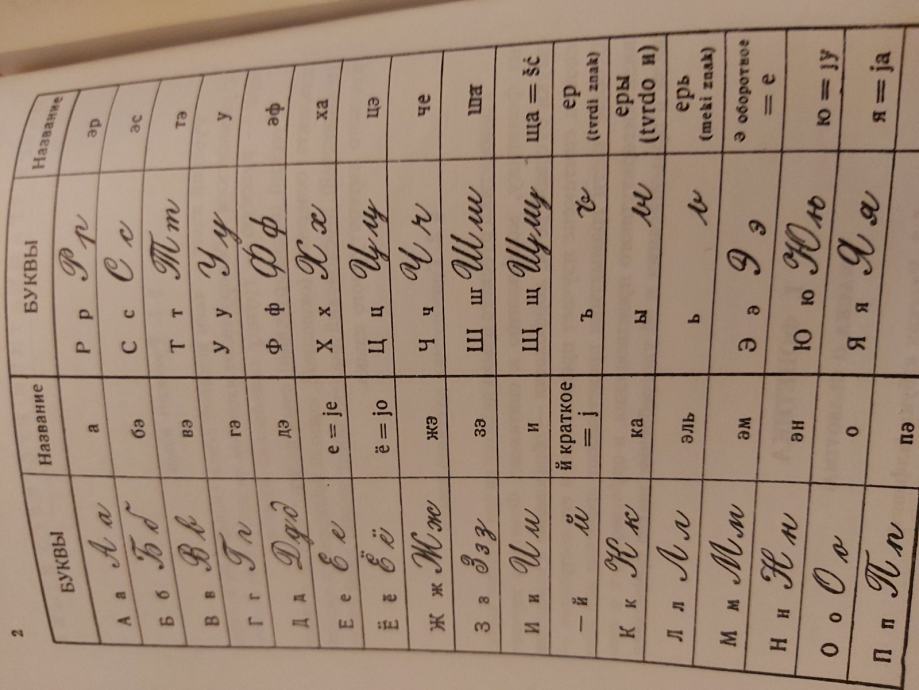 2
БУКВЫ Название БУКВЫ Название
А а А а а Р р Р р эр
Б б Б б бэ С с С с эс
В в В в вэ Т т Т т тэ
Г г Г г гэ У у У у у
Д д Д д д дэ Ф ф Ф ф эф
Е е Е е е = je Х х Х х ха
Ё ё Ё ё ё = jo Ц ц Ц ц цэ
Ж ж Ж ж жэ Ч ч Ч ч че
З з З з з зэ Ш ш Ш ш ша
И и И и и Щ щ Щ щ ща = šć
— й й й краткое = j ъ ъ ер (tvrdi znak)
К к К к ка ы ы еры (tvrdo и)
Л л Л л эль ь ь ерь (meki znak)
М м М м эм Э э Э э э оборотное = e
Н н Н н эн Ю ю Ю ю ю = jу
О о О о о Я я Я я я = ja
П п П п пэ